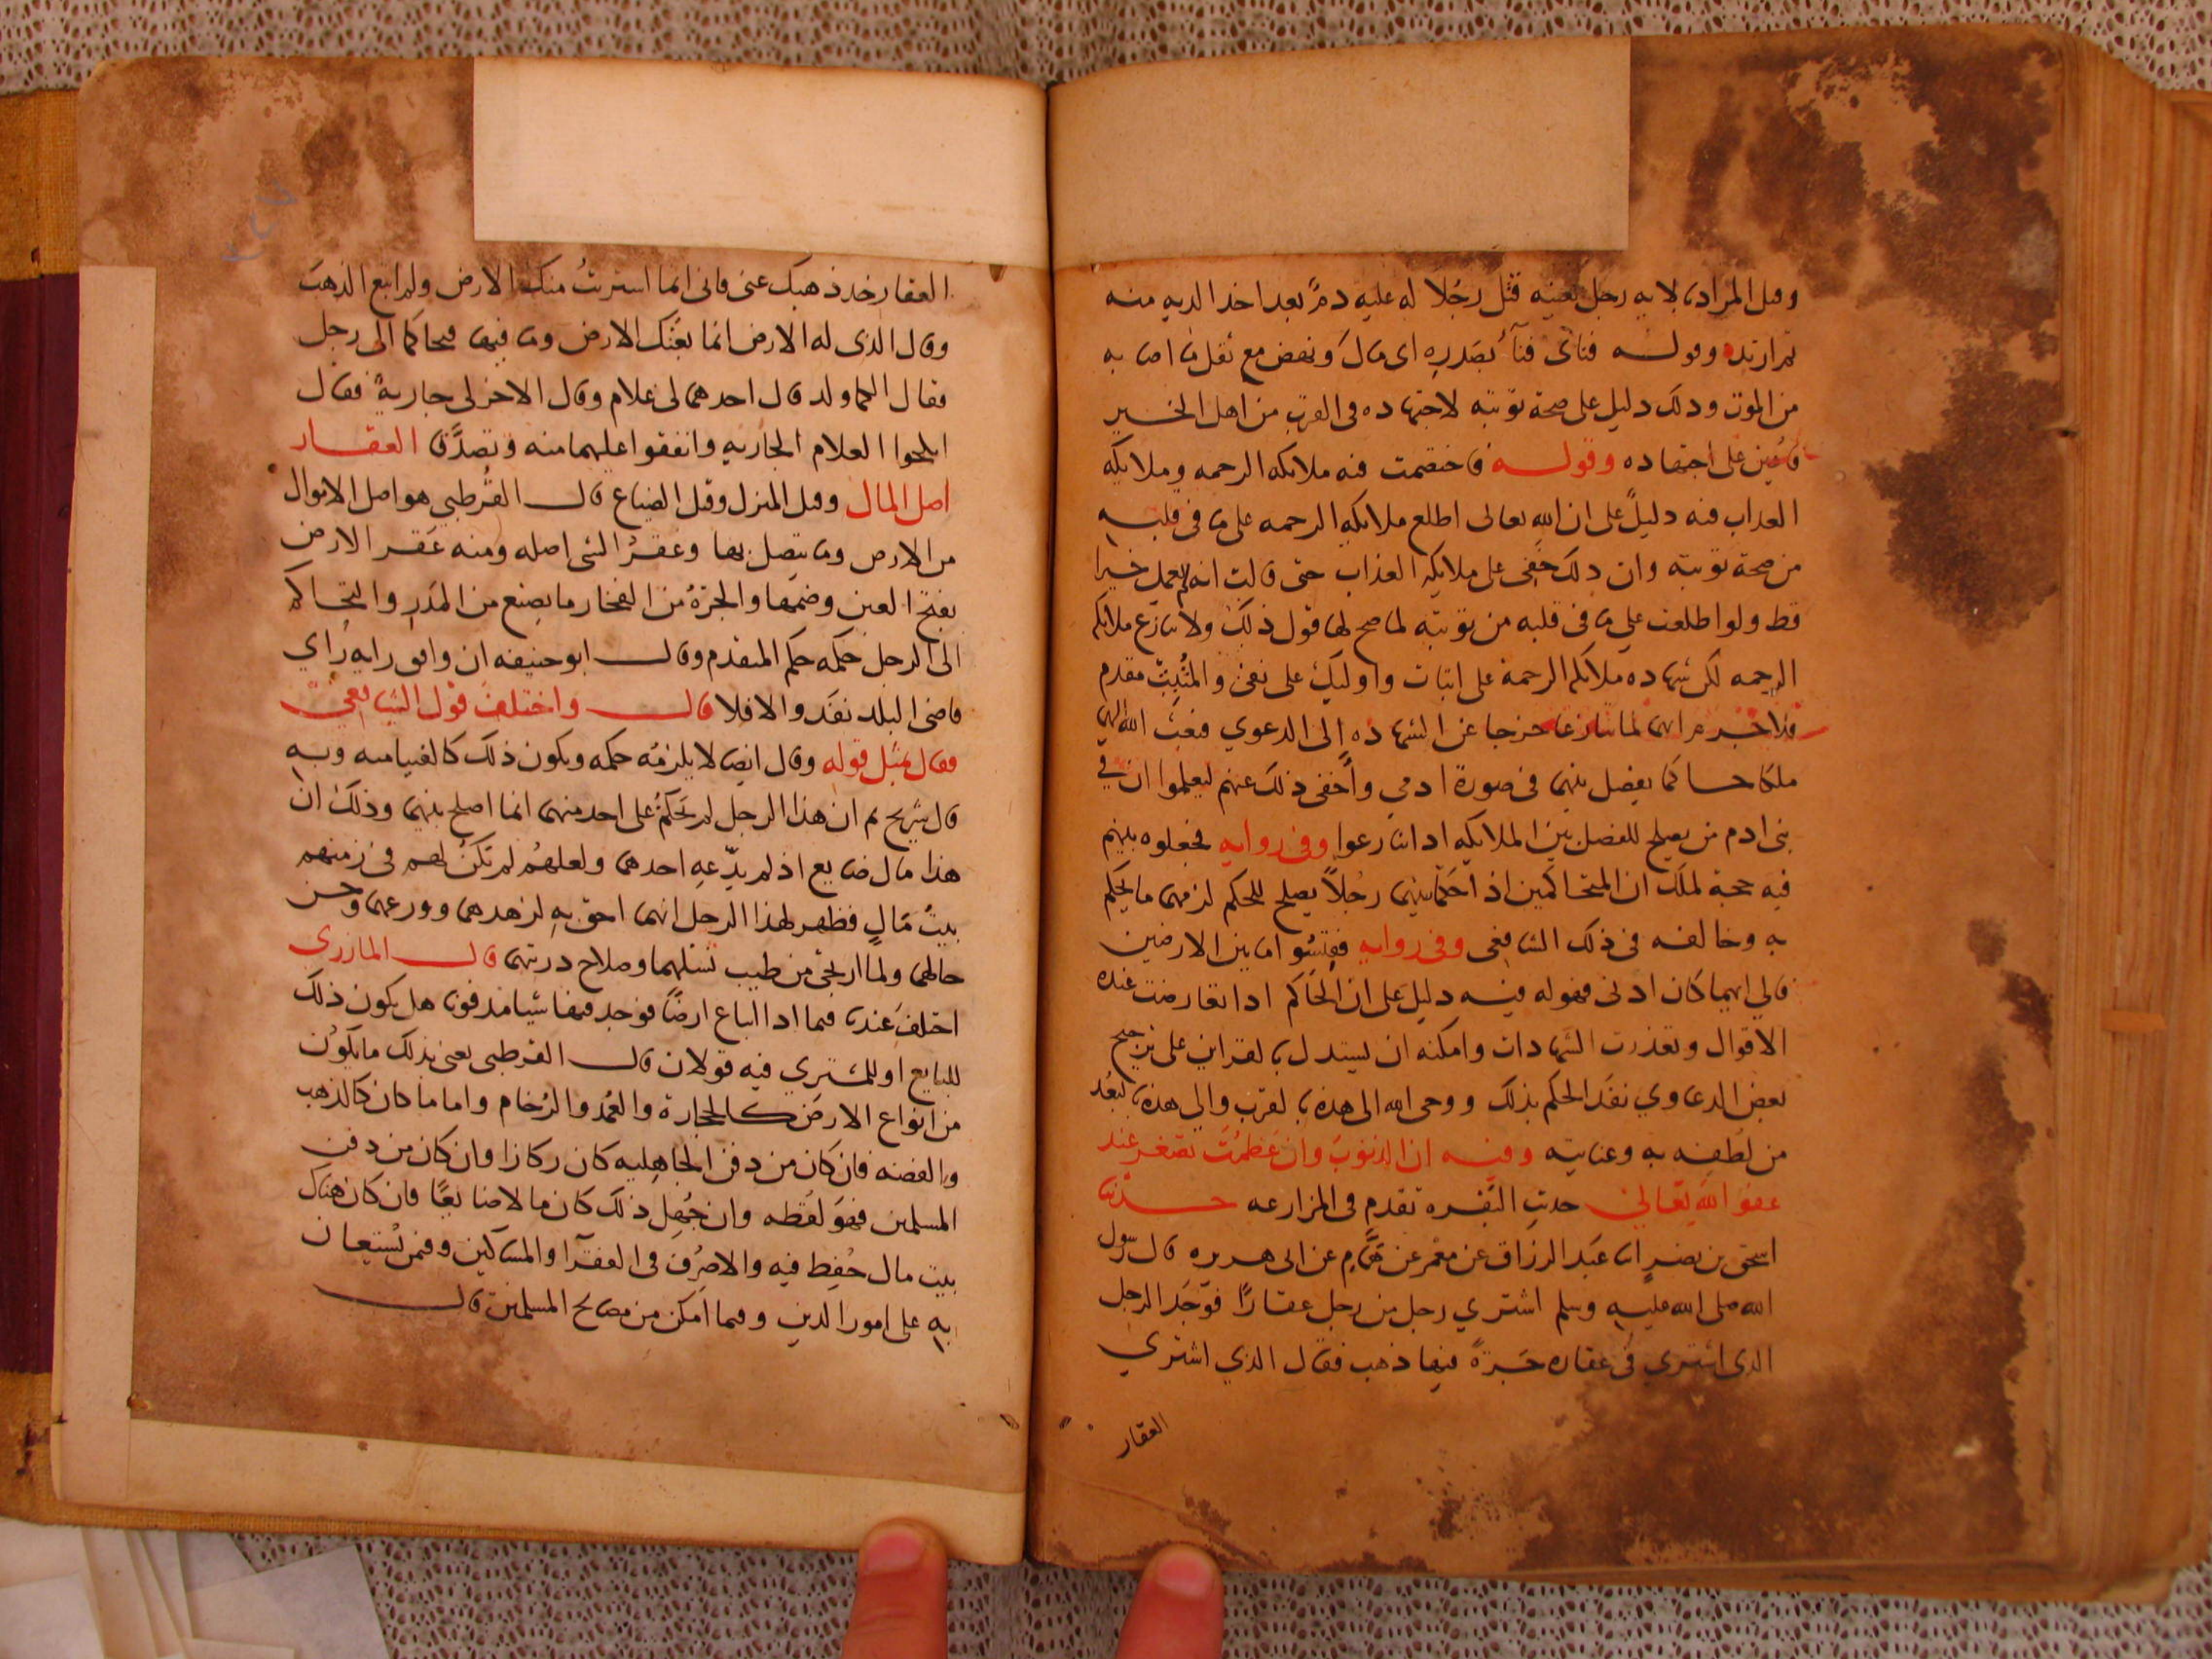 وقيل المراد بالايه رجل بعينه قتل رجُلا له عليه دمٌ بعد اخذ الديه منه
ثم ارتد وقوله فنأى فنآء بصَدره اى مال ونهض مع ثقل ما اصابه
من الموت وذلك دليل على صحة توبته لاجتهاده فى القرب من اهل الخير
فأعين على اجتهاده وقوله فاختصمت فيه ملائكه الرحمه وملايكه
العذاب فيه دليلٌ على ان الله تعالى اطلع ملايكه الرحمه على ما فى قلبه
من صحة توبته وان ذلك خفى على ملايكه العذاب حتى قالت انه لم يعمل خيرا
قط ولو اطلعت على ما فى قلبه من توبته لما صح لها قول ذلك ولا تنازع ملايكه
الرحمه لكن شهاده ملايكه الرحمة على اثبات واوليك على نفى والمثبت مقدم
فلا جرم انهما لما تنازعا خرجا عن الشهاده الى الدعوي فبعث الله اليهم
ملكا حاكما يفصل بينهما فى صورة ادمي وأخفى ذلك عنهم ليعلموا ان في
بنى ادم من يصلح للفصل بين الملايكه اذا تنازعوا وفى روايه فجعلوه بينهم
فيه حجة لملك ان المتحاكمين اذا حَكّما بينهما رجُلاً يصلح للحكم لزمهما ما يحكم
به وخالفه فى ذلك الشافعى وفى روايه فقيسُوا ما بين الارضين
فالي ايهما كان ادنى فهوله فيه دليل على ان الحاكم اذا تعارضت عنده
الاقوال وتعذرت الشهادات وامكنه ان يستدل بالقراين على ترجيح
بعض الدعاوي نفذ الحكم بذلك ووحى الله الى هذه بالقرب والى هذه بالبعُد
من لُطفه به وعنايته وفيه ان الذنوبَ وان عَظمُتَ تصغر عند
عفو الله تعالى حديث البقره تقدم فى المزارعه حدثنا
اسحق بن نصرٍ انا عَبد الرزاق عن معْمر عن همَّامٍ عن ابى هريره قال رسول
الله صلى الله عليه وسلم اشتري رجل من رجل عقارًا فوَجَد الرجل
الذى اشتري فى عقاره جَرَّةً فيها ذهب فقال الذي اشتري
العقار
العقار خذ ذهبك عنى فانى انما اشتريتُ منك الارض ولم ابتع الذهبَ
وقال الذى له الارض انما بعْتك الارض وما فيها فتحاكما الى رجل
فقال الكما ولد قال احدهما لى غلام وقال الاخر لى جاريةٌ فقال
انكحوا الغلام الجاريه وانفقوا عليهما منه وتصدَّقا العقار
اصل المال وقيل المنزل وقيل الضياع قال القُرطبي هو اصل الاموال
من الارض وما يتصل بها وعقرُ الشى اصله ومنه عَقر الارض
بفتح العين وضمها والجرَّةُ من الفخار ما يصنع من المدَرِ والتحاكم
الى الرجل حكمه حكم المتقدم وقال ابو حنيفه ان وافق رايه رأي
قاضى البلد نفذ والا فلا قال واختلفَ قول الشافعي
فقال بمثل قوله وقال ايضا لا يلزمُه حكمه ويكون ذلك كالفتيا منه وبه
قال شريح ثم ان هذا الرجل لم يَحكمُ على احد منهما انما اصلح بينهما وذلك ان
هذا مال ضايع اذ لم يدّعه احدهما ولعلهُم لم تكنْ لهم فى زمنهم
بيتُ مَالٍ فظهر لهذا الرجل انهما احق به لزهدهما وورعهما وحسن
حالهما ولما ارتجى من طيب نسْلهما وصلاح ذريتهما قال المازرى
اختلفَ عندنا فيما اذا ابتاع ارضًا فوجد فيها شيا مدفونا هل يكون ذلك
للبايع او للمشتري فيه قولان قال القرطبى يعنى بذلك ما يكوُن
من انواع الارض كالحجارة والعُمد والرُخام واما ما كان كالذهب
والفضه فان كان من دفن الجاهليه كان ركازا وان كان من دفن
المسلمين فهوَ لقُطه وان جُهل ذلك كان مالا ضايعًا فان كان هناك
بيت مال حُفِظ فيه والا صُرف فى الفقرآ والمساكين وفمن يُستعان
به على امور الدين وفيما امكن من مصالح المسلمين قال